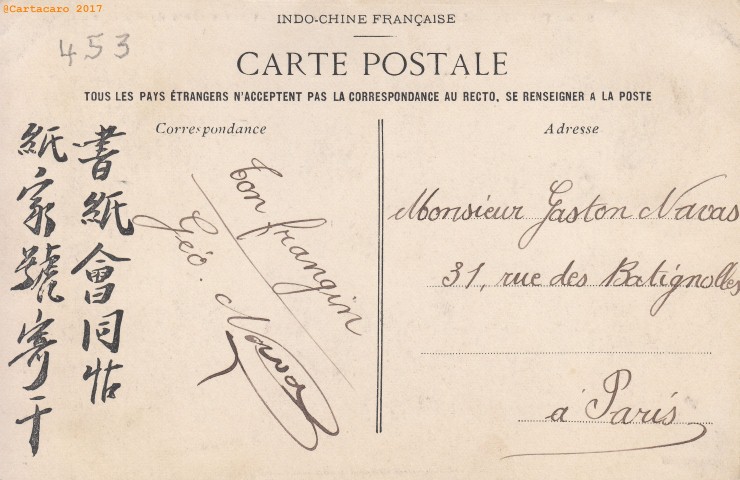 @Cartacaro 2017
453
INDO-CHINE FRANÇAISE
CARTE POSTALE
TOUS LES PAYS ÉTRANGERS N'ACCEPTENT PAS LA CORRESPONDANCE AU RECTO, SE RENSEIGNER A LA POSTE
Correspondance
書紙會同帖
紙家號寄干
ton frangin
Géo. Navas
Adresse
Monsieur Gaston Navas
31, rue des Batignolles
à Paris